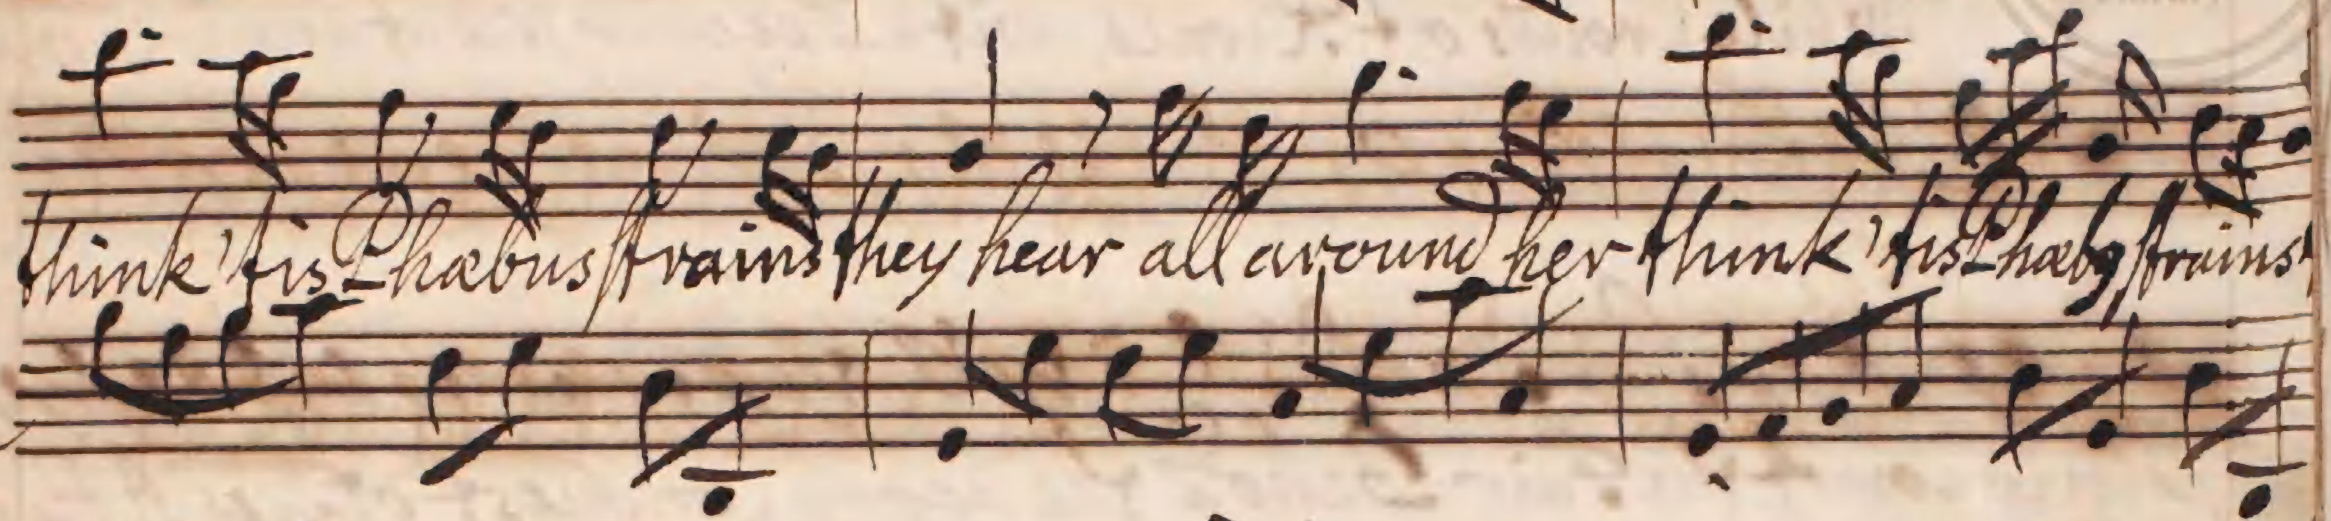 think 'tis Phæbus strains they hear all around her think 'tis Phæbꝰ strains